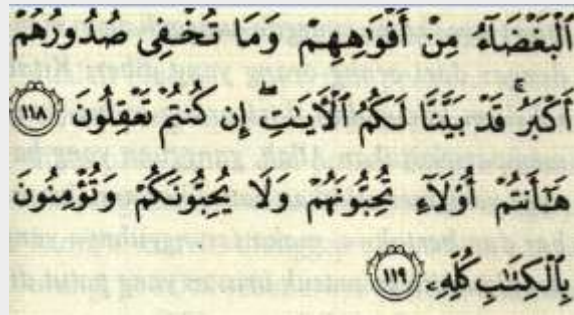 ٱلْبَغْضَآءُ مِنْ أَفْوَٰهِهِمْ وَمَا تُخْفِى صُدُورُهُمْ
أَكْبَرُ ۚ قَدْ بَيَّنَّا لَكُمُ ٱلْـَٔايَـٰتِ ۖ إِن كُنتُمْ تَعْقِلُونَ ١١٨
هَـٰٓأَنتُمْ أُو۟لَآءِ تُحِبُّونَهُمْ وَلَا يُحِبُّونَكُمْ وَتُؤْمِنُونَ
بِٱلْكِتَـٰبِ كُلِّهِۦ ١١٩